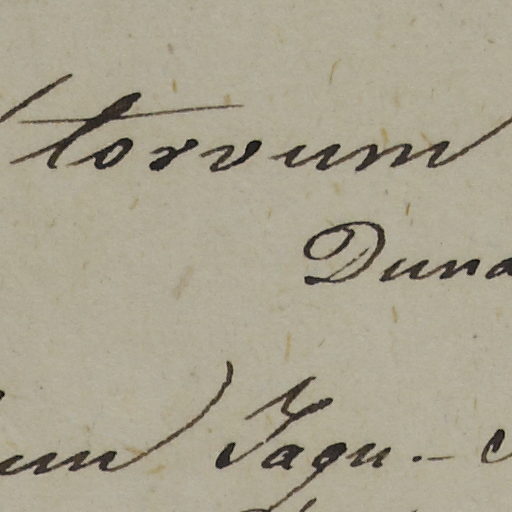 torvum
Duna
um Jaqu.-